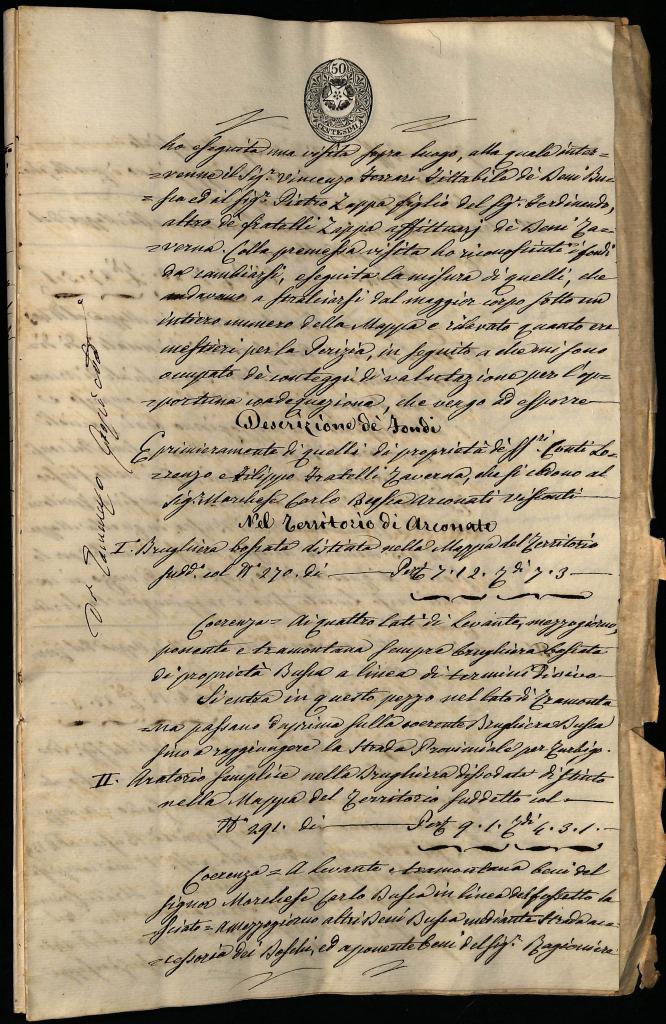 50
CENTESIMI
ho eseguita una visita sopra luogo, alla quale inter=
=venne il Sig.r Vincenzo Ferrari Fittabile de' Beni Bu=
=sca ed il Sig.r Pietro Zappa figlio del Sig.r Ferdinando,
altro de' fratelli Zappa affittuarj de' Beni Ta=
=verna. Colla premessa visita ho riconosciuti i fondi
da cambiarsi, eseguita la misura di quelli, che
andavano a stralciarsi dal maggior corpo sotto un
intiero numero della Mappa e rilevato quanto era
mestieri per la Perizia, in seguito a che mi sono
occupato de' conteggi di valutazione per l'op=
=portuna coadequazione, che vengo ad esporre
Descrizione de' Fondi
E primieramente di quelli di proprietà de' SS.ri Conti Lo=
renzo e Filippo Fratelli Taverna, che si cedono al
Sig.r Marchese Carlo Busca Arconati Visconti
Nel Territorio di Arconate
I. Brughiera boscata distinta nella Mappa del Territorio
sudd.o col N.o 270. di Pert. 7. 12. di 7. 3
Coerenza = Ai quattro lati di Levante, mezzogiorno,
ponente e tramontana sempre brughiera boscata
di proprietà Busca a linea di termini divisivo
Si entra in questo pezzo nel lato di Tramonta
=na passano dapprima sulla coerente Brughiera Busca
fino a raggiungere la Strada Provinciale per Turbigo.
II. Aratorio semplice nella Brughiera dissodata distinto
nella Mappa del Territorio suddetto col
N.o 291. di Pert. 9. 1. di 4. 3. 1.
Coerenza = A levante e tramontana beni del
Signor Marchese Carlo Busca in linea del fossetto la
sciato = A mezzogiorno altri Beni Busca mediante strada ac=
=cessoria dei Boschi, ed a ponente beni del Sig.r Ragioniere